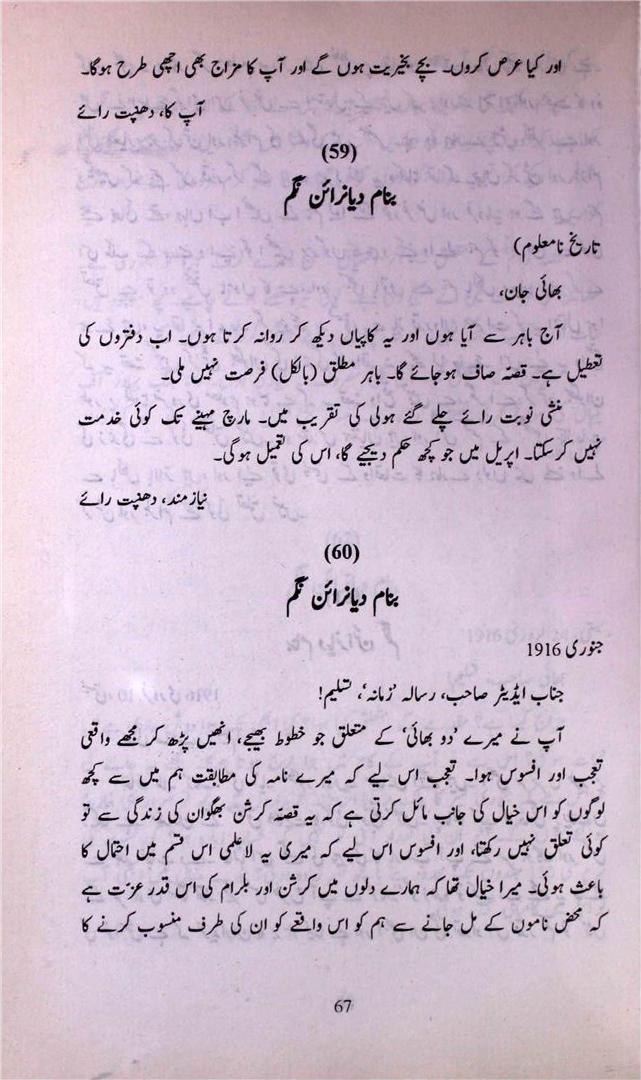 اور کیا عرض کروں۔ بچے بخیریت ہوں گے اور آپ کا مزاج بھی اچھی طرح ہوگا۔
آپ کا، دھنپت رائے
(59)
بنام دیانرائن نگم
تاریخ نامعلوم)
بھائی جان،
آج باہر سے آیا ہوں اور یہ کاپیاں دیکھ کر روانہ کرتا ہوں۔ اب دفتروں کی
تعطیل ہے۔ قصّہ صاف ہوجائے گا۔ باہر مطلق (بالکل) فرصت نہیں ملی۔
منشی نوبت رائے چلے گئے ہولی کی تقریب میں۔ مارچ مہینے تک کوئی خدمت
نہیں کرسکتا۔ اپریل میں جو کچھ حکم دیجیے گا، اس کی تعمیل ہوگی۔
نیازمند، دھنپت رائے
(60)
بنام دیانرائن نگم
جنوری 1916
جناب ایڈیٹر صاحب، رسالہ ’زمانہ‘، تسلیم!
آپ نے میرے ’دو بھائی‘ کے متعلق جو خطوط بھیجے، انھیں پڑھ کر مجھے واقعی
تعجب اور افسوس ہوا۔ تعجب اس لیے کہ میرے نامہ کی مطابقت ہم میں سے کچھ
لوگوں کو اس خیال کی جانب مائل کرتی ہے کہ یہ قصّہ کرشن بھگوان کی زندگی سے تو
کوئی تعلق نہیں رکھتا، اور افسوس اس لیے کہ میری یہ لاعلمی اس قسم میں احتمال کا
باعث ہوئی۔ میرا خیال تھا کہ ہمارے دلوں میں کرشن اور بلرام کی اس قدر عزّت ہے
کہ محض ناموں کے مل جانے سے ہم کو اس واقعے کو ان کی طرف منسوب کرنے کا
67